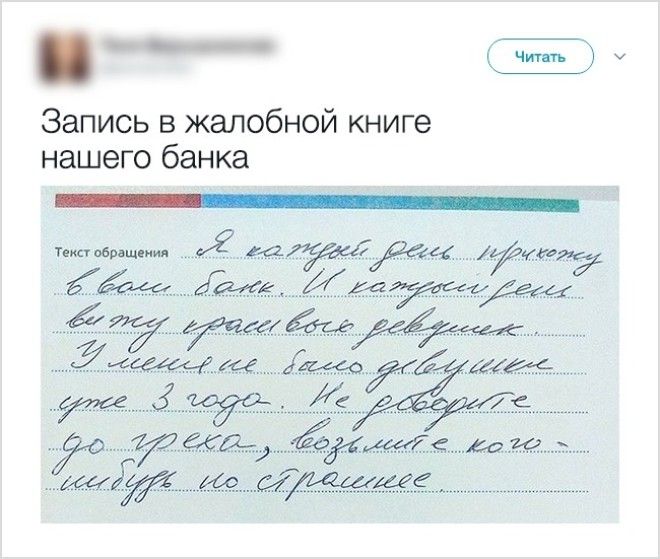 Читать
Запись в жалобной книге
нашего банка
Текст обращения Я каждый день прихожу
в ваш банк. И каждый день
вижу красивых девушек.
У меня не было девушки
уже 3 года. Не доводите
до греха, возьмите кого-
нибудь по страшнее.